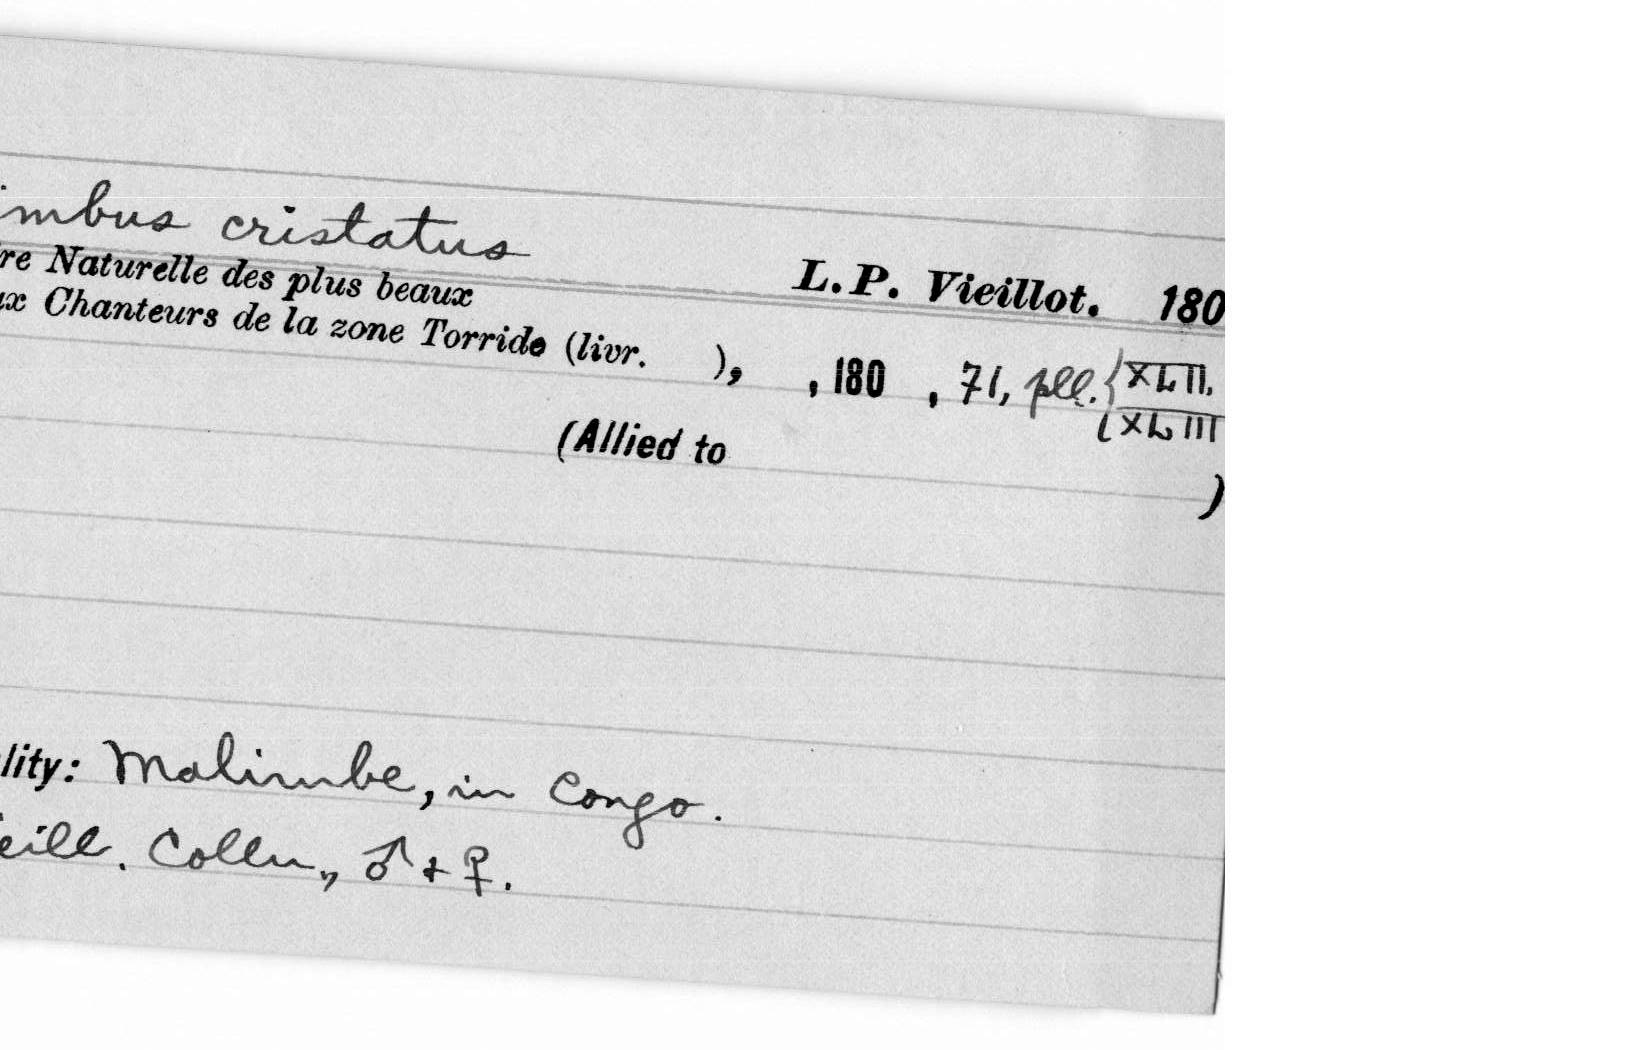 imbus cristatus
re Naturelle des plus beaux
L. P. Vieillot. 180
ux Chanteurs de la zone Torride (livr. ), , 180 , 71, pll. { XLII.
XLIII
(Allied to
)
lity: Malimbe, in Congo.
eill. Colln., ♂ + ♀.